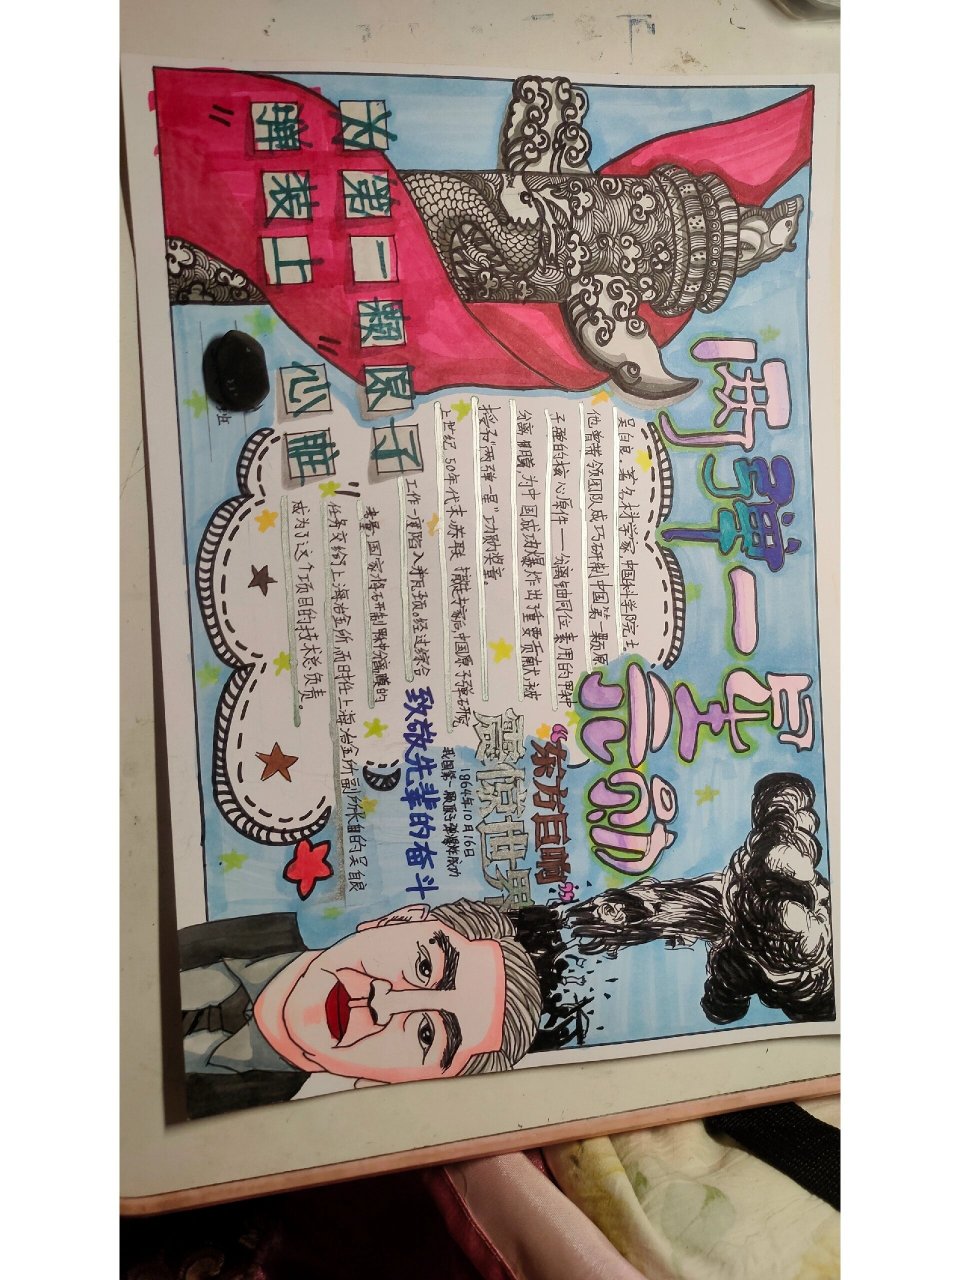 两弹一星元勋
为第一颗原子
"弹装上"心脏"
吴自良，著名科学家，中国科学院院士。
他曾带领团队成功研制中国第一颗原
子弹的核心原件——分离铀同位素用的甲种
分离膜，为中国成功爆炸出了重要贡献，被
授予"两弹一星"功勋奖章。
上世纪50年代末，苏联撤走专家后，中国原子弹研究
工作一度陷入瓶颈。经过综合
考量，国家将研制甲种分离膜的
任务交给上海冶金所，而时任上海冶金所副所长的吴自良
成为了这个项目的技术总负责。
"东方巨响"
震惊世界
1864年10月16日
我国第一颗原子弹爆炸成功
致敬先辈的奋斗
班